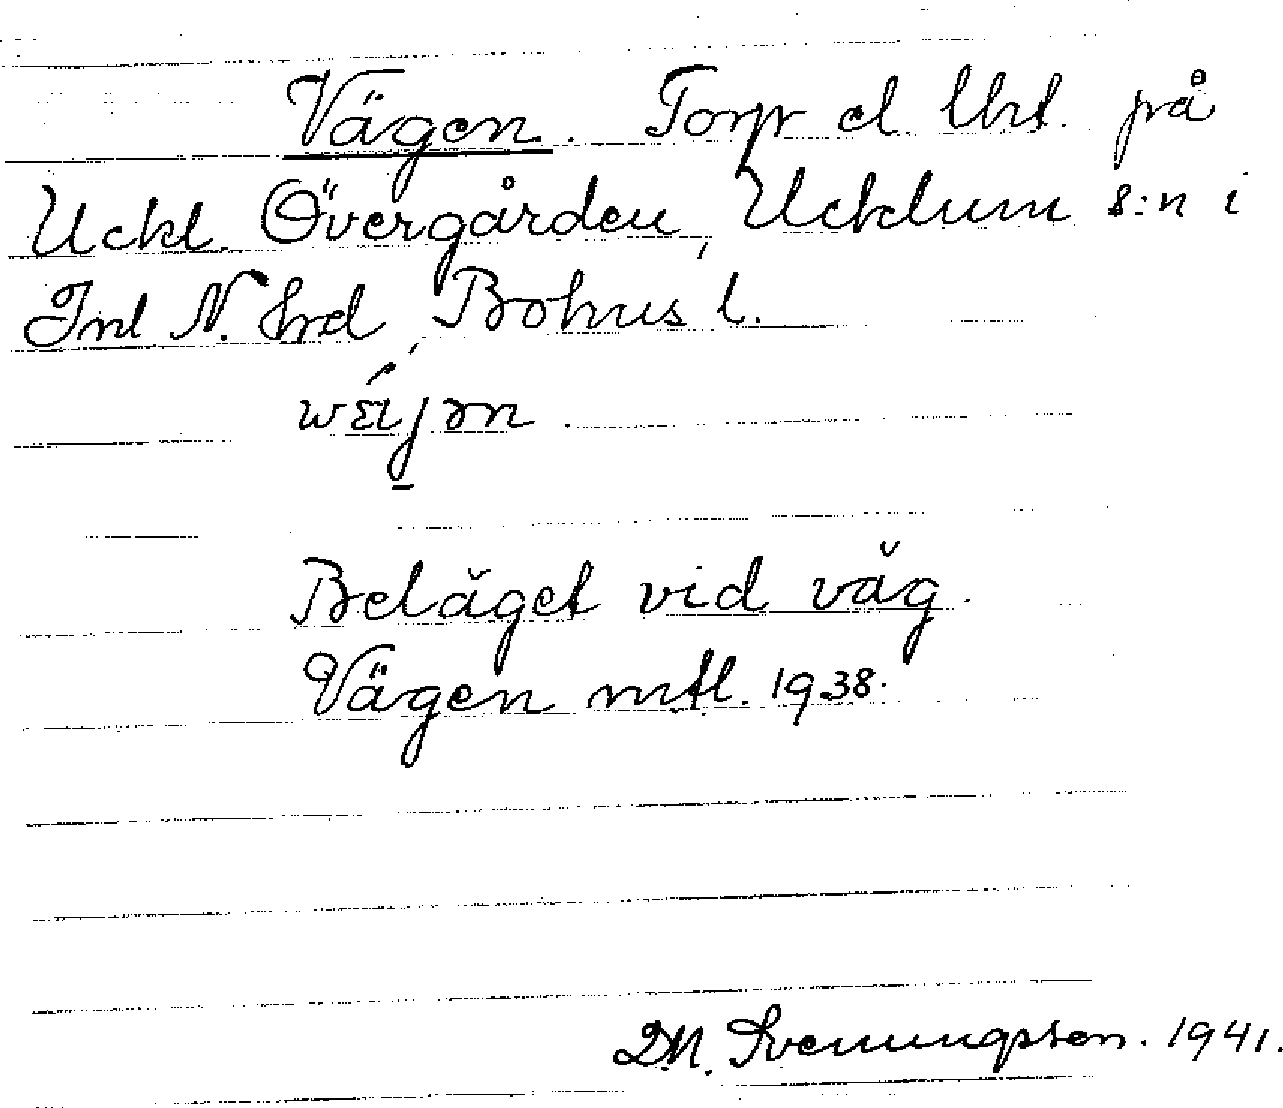 Vägen. Torp el lht. på
Uckl. Övergården, Ucklum s:n i
Inl N. hrd, Bohus l.
Beläget vid väg.
Vägen mtl. 1938.
D.N. Svenungsson. 1941.